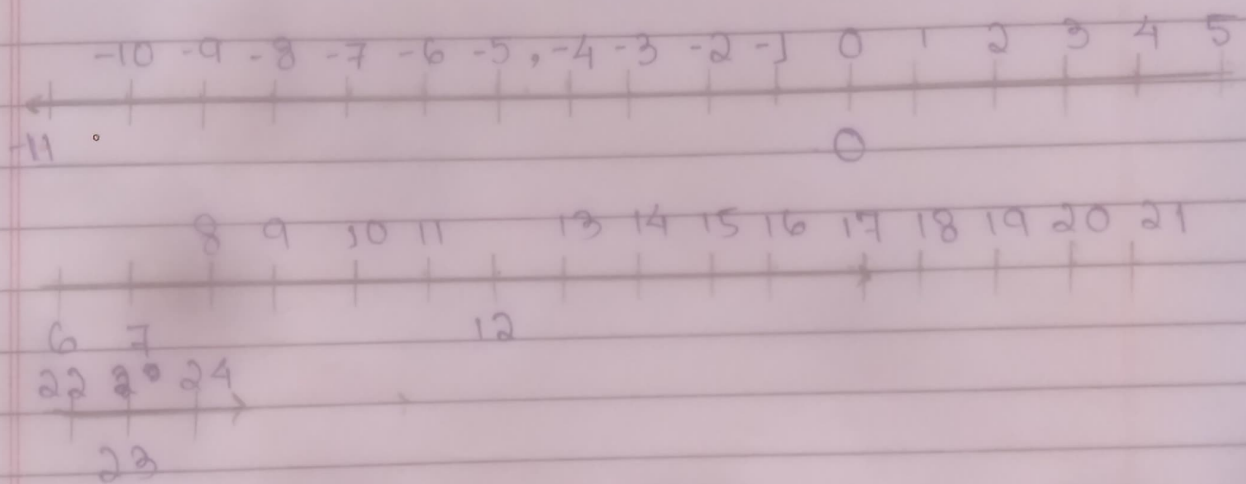 -10 -9 -8 -7 -6 -5, -4 -3 -2 -1 0 1 2 3 4 5
-11 0
8 9 10 11 13 14 15 16 17 18 19 20 21
6 7 12
22 24
23